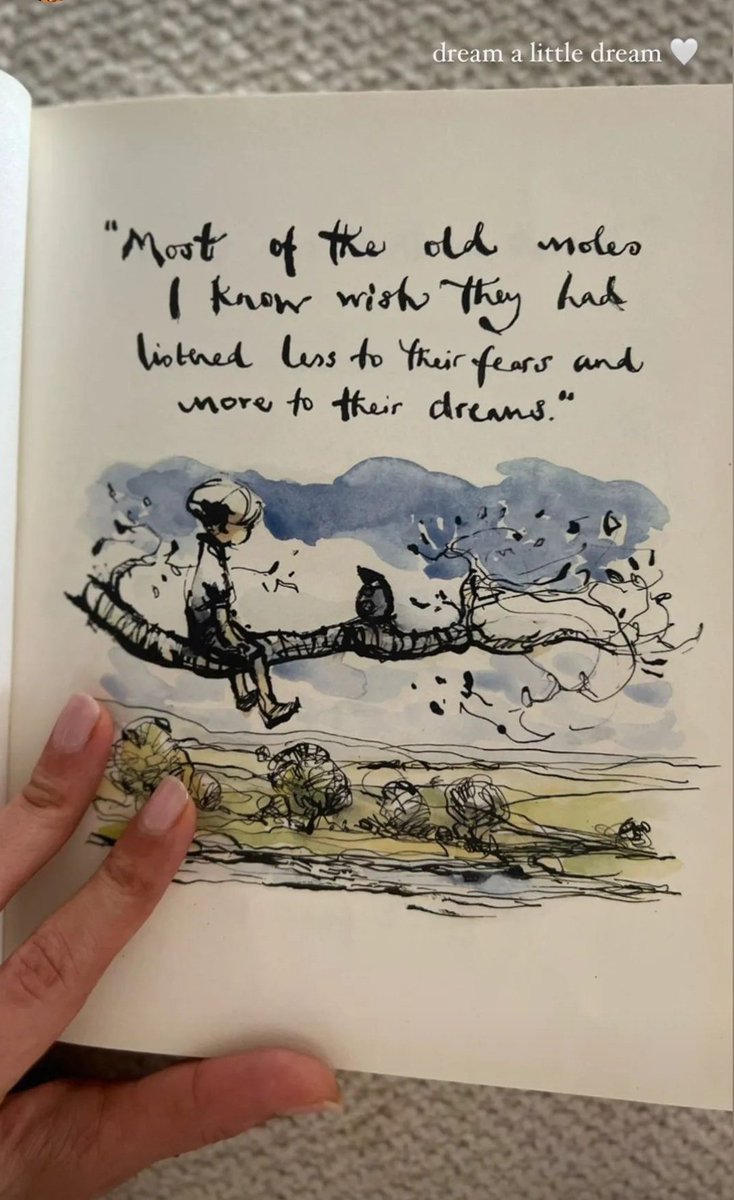 dream a little dream 🤍
"Most of the old moles
I know wish they had
listened less to their fears and
more to their dreams."